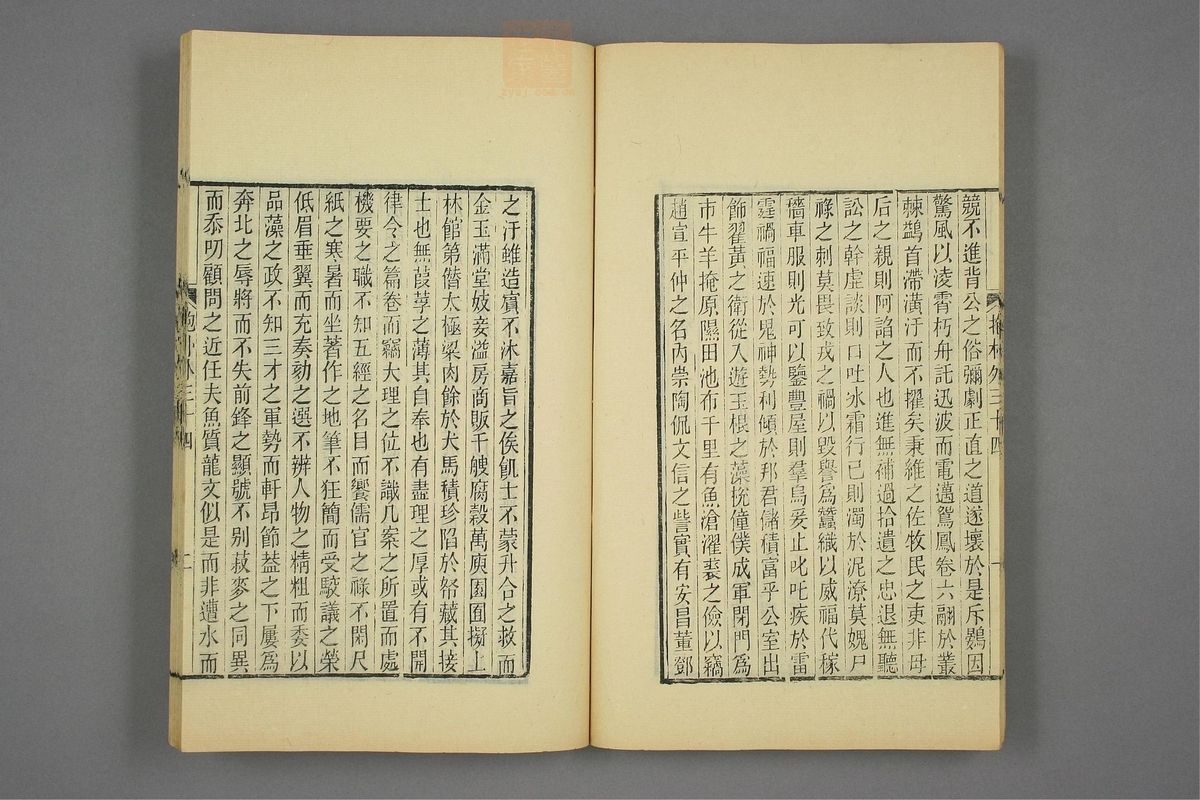 競不進背公之俗彌劇正直之道遂壞於是斥鷃因
驚風以凌霄朽舟託迅波而電邁鴛鳳卷六翮於叢
棘鷁首滯潢汙而不擢矣秉維之佐牧民之吏非母
后之親則阿諂之人也進無補過拾遺之忠退無聽
訟之幹虛談則口吐冰霜行已則濁於泥潦莫媿尸
祿之刺莫畏致戎之禍以毀譽爲蠶織以威福代稼
穡車服則光可以鑒豐屋則羣烏爰止叱吒疾於雷
霆禍福速於鬼神勢利傾於邦君儲積富乎公室出
飾翟黃之衛從入遊玉根之藻梲僮僕成軍閉門爲
市牛羊掩原隰田池布千里有魚滄濯裘之儉以竊
趙宣平仲之名內崇陶侃文信之訾實有安昌董鄧
之汙雖造賓不沐嘉旨之俟飢士不蒙升合之救而
金玉滿堂妓妾溢房商販千艘腐穀萬庾園囿擬上
林館第僭太極梁肉餘於犬馬積珍陷於帑藏其接
士也無葭莩之薄其自奉也有盡理之厚或有不開
律令之篇卷而竊大理之位不識几案之所置而處
機要之職不知五經之名目而饗儒官之祿不閑尺
紙之寒暑而坐著作之地筆不狂簡而受駮議之榮
低眉垂翼而充奏劾之選不辨人物之精粗而委以
品藻之政不知三才之軍勢而軒昂節葢之下屢爲
奔北之辱將而不失前鋒之顯號不别菽麥之同異
而忝叨顧問之近任夫魚質龍文似是而非遭水而
抱朴外三十四
一
抱朴外三十四
二